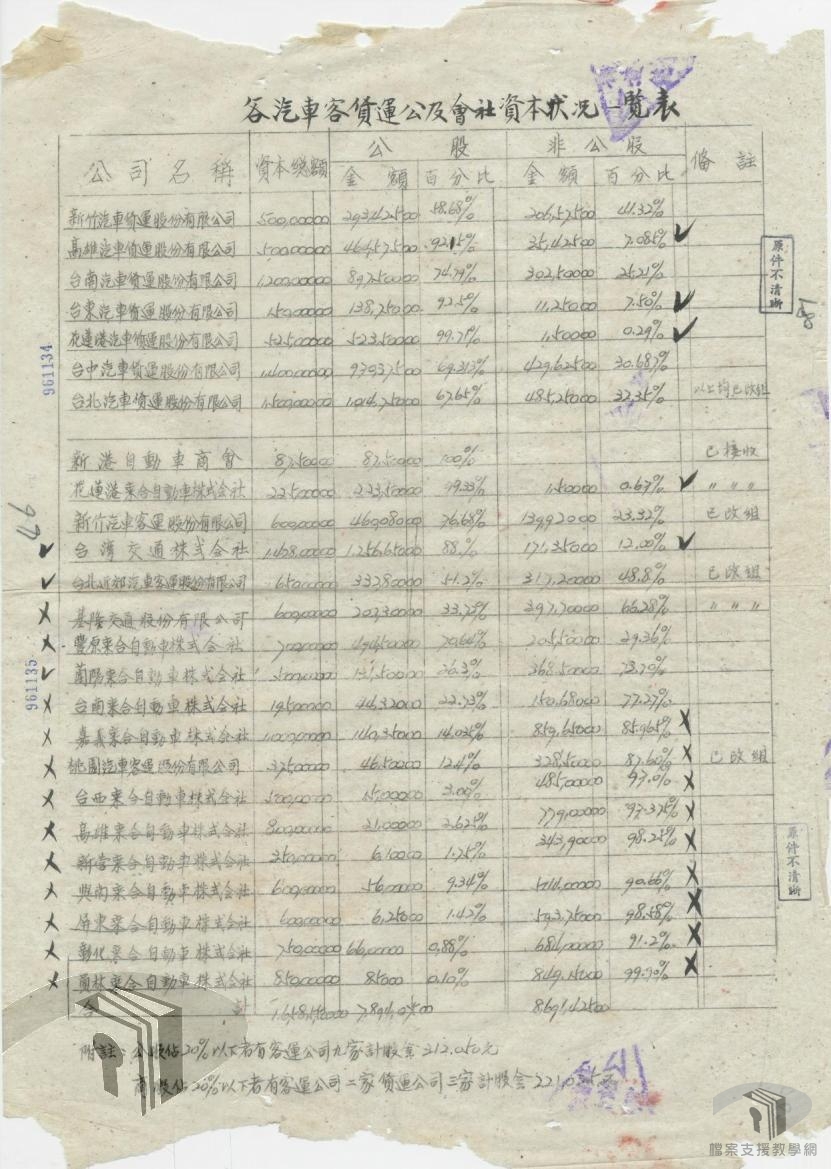 各汽車客貨運公及會社資本狀况一覽表
公司名稱 資本總額 公股 非公股 備註
金額 百分比 金額 百分比
新竹汽車貨運股份有限公司 500,000.00 293,425.00 58.68% 206,575.00 41.32%
高雄汽車貨運股份有限公司 500,000.00 464,575.00 92.15% 35,425.00 7.085%
台南汽車貨運股份有限公司 1,200,000.00 897,500.00 74.79% 302,500.00 25.21%
台東汽車貨運股份有限公司 150,000.00 138,750.00 92.5% 11,250.00 7.50%
花蓮港汽車貨運股份有限公司 525,000.00 523,500.00 99.71% 1,500.00 0.29%
台中汽車貨運股份有限公司 1,400,000.00 970,375.00 69.313% 429,625.00 30.687%
台北汽車貨運股份有限公司 1,500,000.00 1,014,750.00 67.65% 485,250.00 32.35% 以上均已改組
新港自動車商會 87,500.00 87,500.00 100% 已接收
花蓮港乘合自動車株式会社 225,000.00 223,500.00 99.33% 1,500.00 0.67% 〃〃〃
新竹汽車客運股份有限公司 600,000.00 460,080.00 76.68% 139,920.00 23.32% 已改組
台灣交通株式会社 1,428,000.00 1,256,650.00 88% 171,350.00 12.00%
台北近郊汽車客運股份有限公司 650,000.00 332,800.00 51.2% 317,200.00 48.8% 已改組
基隆交通股份有限公司 600,000.00 202,300.00 33.72% 397,700.00 66.28% 〃〃〃
豐原乘合自動車株式会社 700,000.00 494,500.00 70.64% 205,500.00 29.36%
蘭陽乘合自動車株式会社 500,000.00 131,500.00 26.3% 368,500.00 73.70%
台南乘合自動車株式会社 195,000.00 44,320.00 22.73% 150,680.00 77.27%
嘉義乘合自動車株式会社 1,000,000.00 140,350.00 14.035% 859,650.00 85.965%
桃園汽車客運股份有限公司 375,000.00 46,500.00 12.4% 328,500.00 87.60% 已改組
台西乘合自動車株式会社 500,000.00 15,000.00 3.00% 485,000.00 97.0%
高雄乘合自動車株式会社 800,000.00 21,000.00 2.625% 779,000.00 97.375%
新營乘合自動車株式会社 350,000.00 6,100.00 1.75% 343,900.00 98.25%
興南乘合自動車株式会社 600,000.00 56,000.00 9.34% 544,000.00 90.66%
屏東乘合自動車株式会社 600,000.00 6,250.00 1.42% 593,750.00 98.58%
彰化乘合自動車株式会社 750,000.00 66,000.00 0.88% 684,000.00 91.2%
員林乘合自動車株式会社 850,000.00 850.00 0.10% 849,150.00 99.90%
合計 8,691,425.00
附註：公股佔20%以下者有客運公司九家計股金
商股佔20%以下者有客運公司二家貨運公司三家計股金
原件不清晰
原件不清晰
961134
961135
46
檔案支援教學網